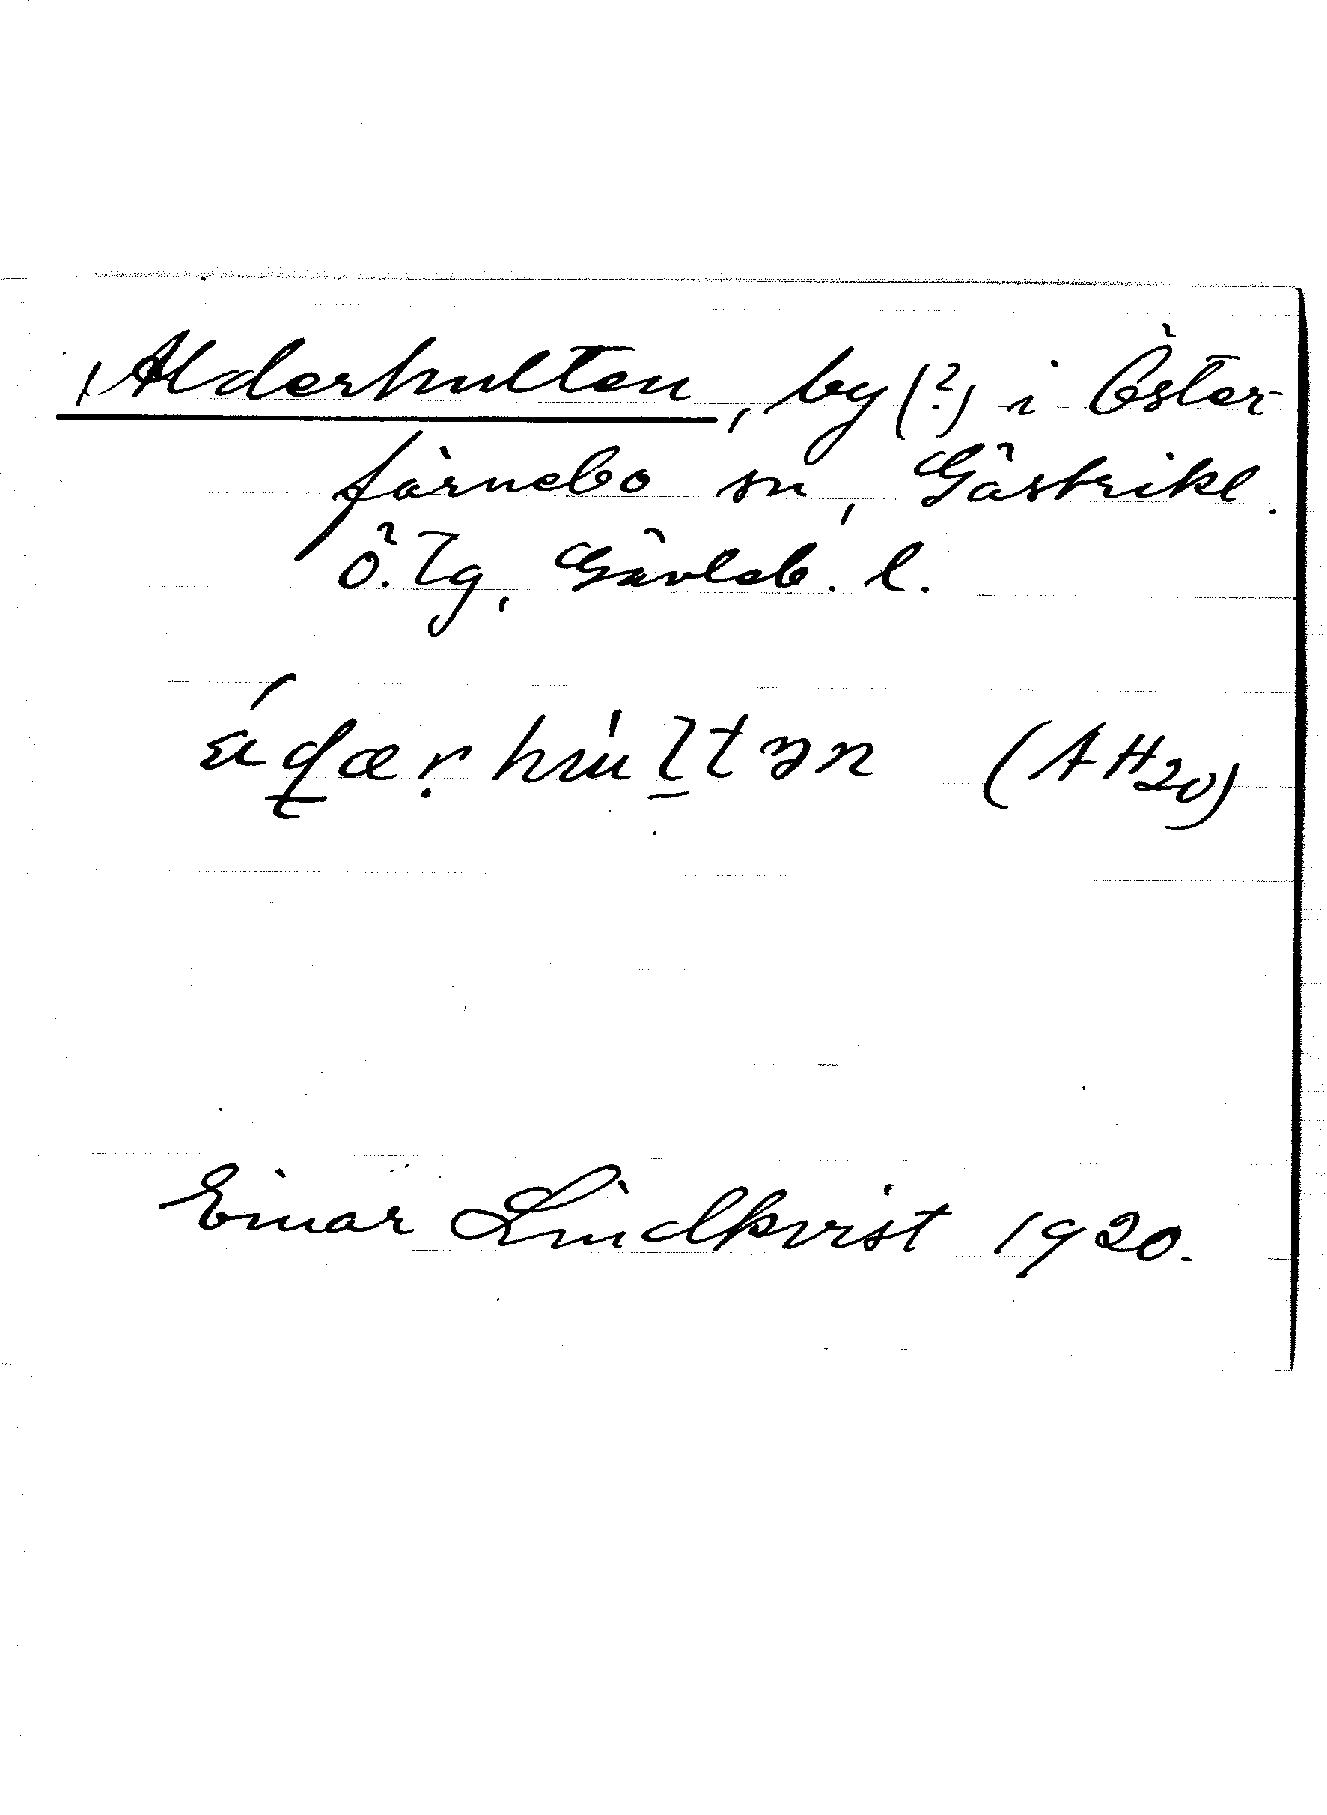 Alderhulten, by (?) i Öster-
färnebo sn, Gästrikl.
Ö. Tg, Gävleb. l.
(AH20)
Einar Lindkvist 1920.